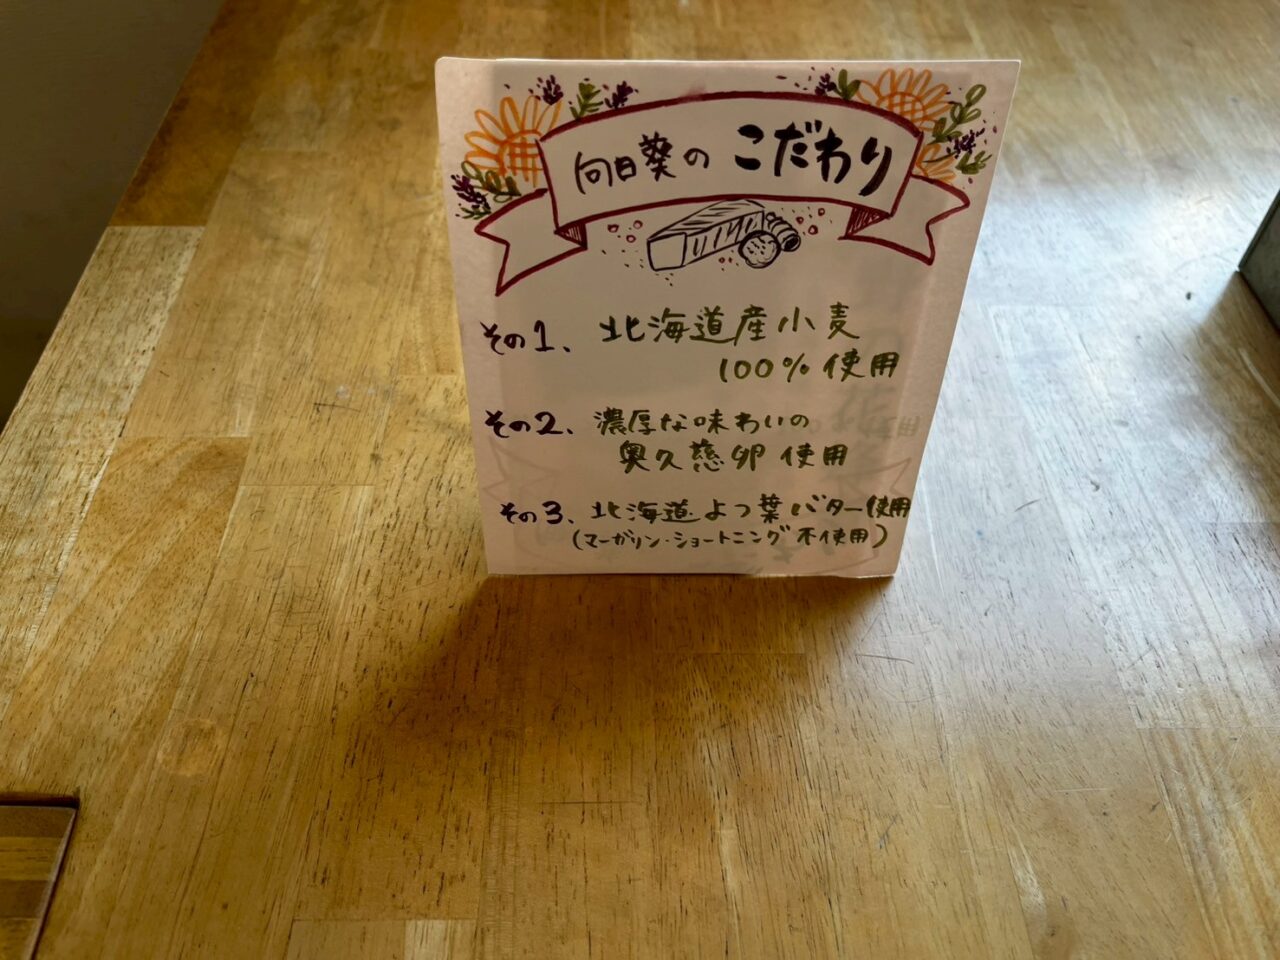 向日葵の こだわり
その1、北海道産小麦
100%使用
その2、濃厚な味わいの
奥久慈卵使用
その3、北海道よつ葉バター使用
(マーガリン・ショートニング不使用)